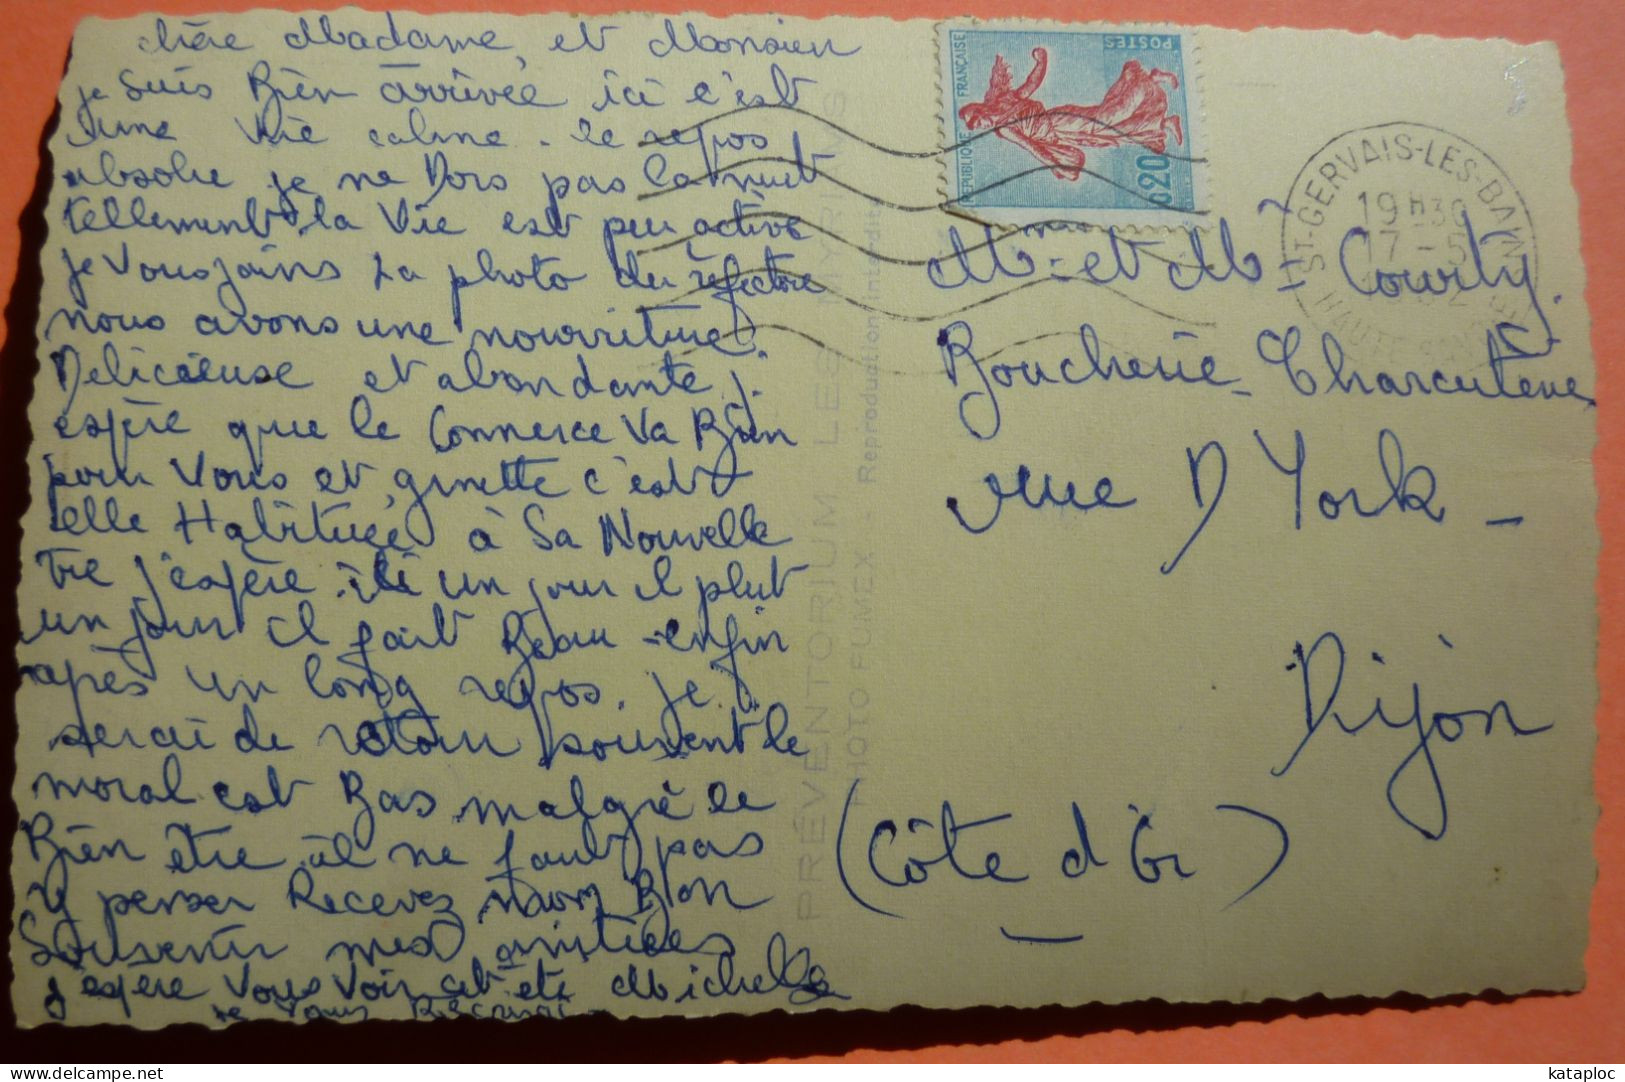 chère Madame et Monsieur
je suis Bien arrivée ici c'est
une vie calme - le repos
absolu je ne Dors pas la nuit
tellement la Vie est peu active
je vous joins la photo du réfectoire
nous avons une nourriture
Delicieuse et abondante j.
espère que le Commerce va Bien
pour Vous et ginette c'est
elle Habituée à Sa Nouvelle
vie j'espère ici un jour il pleut
un jour il fait Beau - enfin
après un long repos. je
serai de retour souvent le
moral est Bas malgré le
Bien être il ne faut pas
y penser Recevez mon Bon
Souvenir mes amitiées
j'espère Vous Voir cet été Michelle
je vous Récrirai -
PRÉVENTORIUM LES MYRIAMS
PHOTO FUMEX - Reproduction interdite
RÉPUBLIQUE FRANÇAISE
POSTES
0,20
ST-GERVAIS-LES-BAINS
19H30
17-5
HAUTE SAVOIE
Mme et Mr Courty.
Boucherie - Charcuterie
rue D York -
Dijon
(Côte d'Or)
kataploc